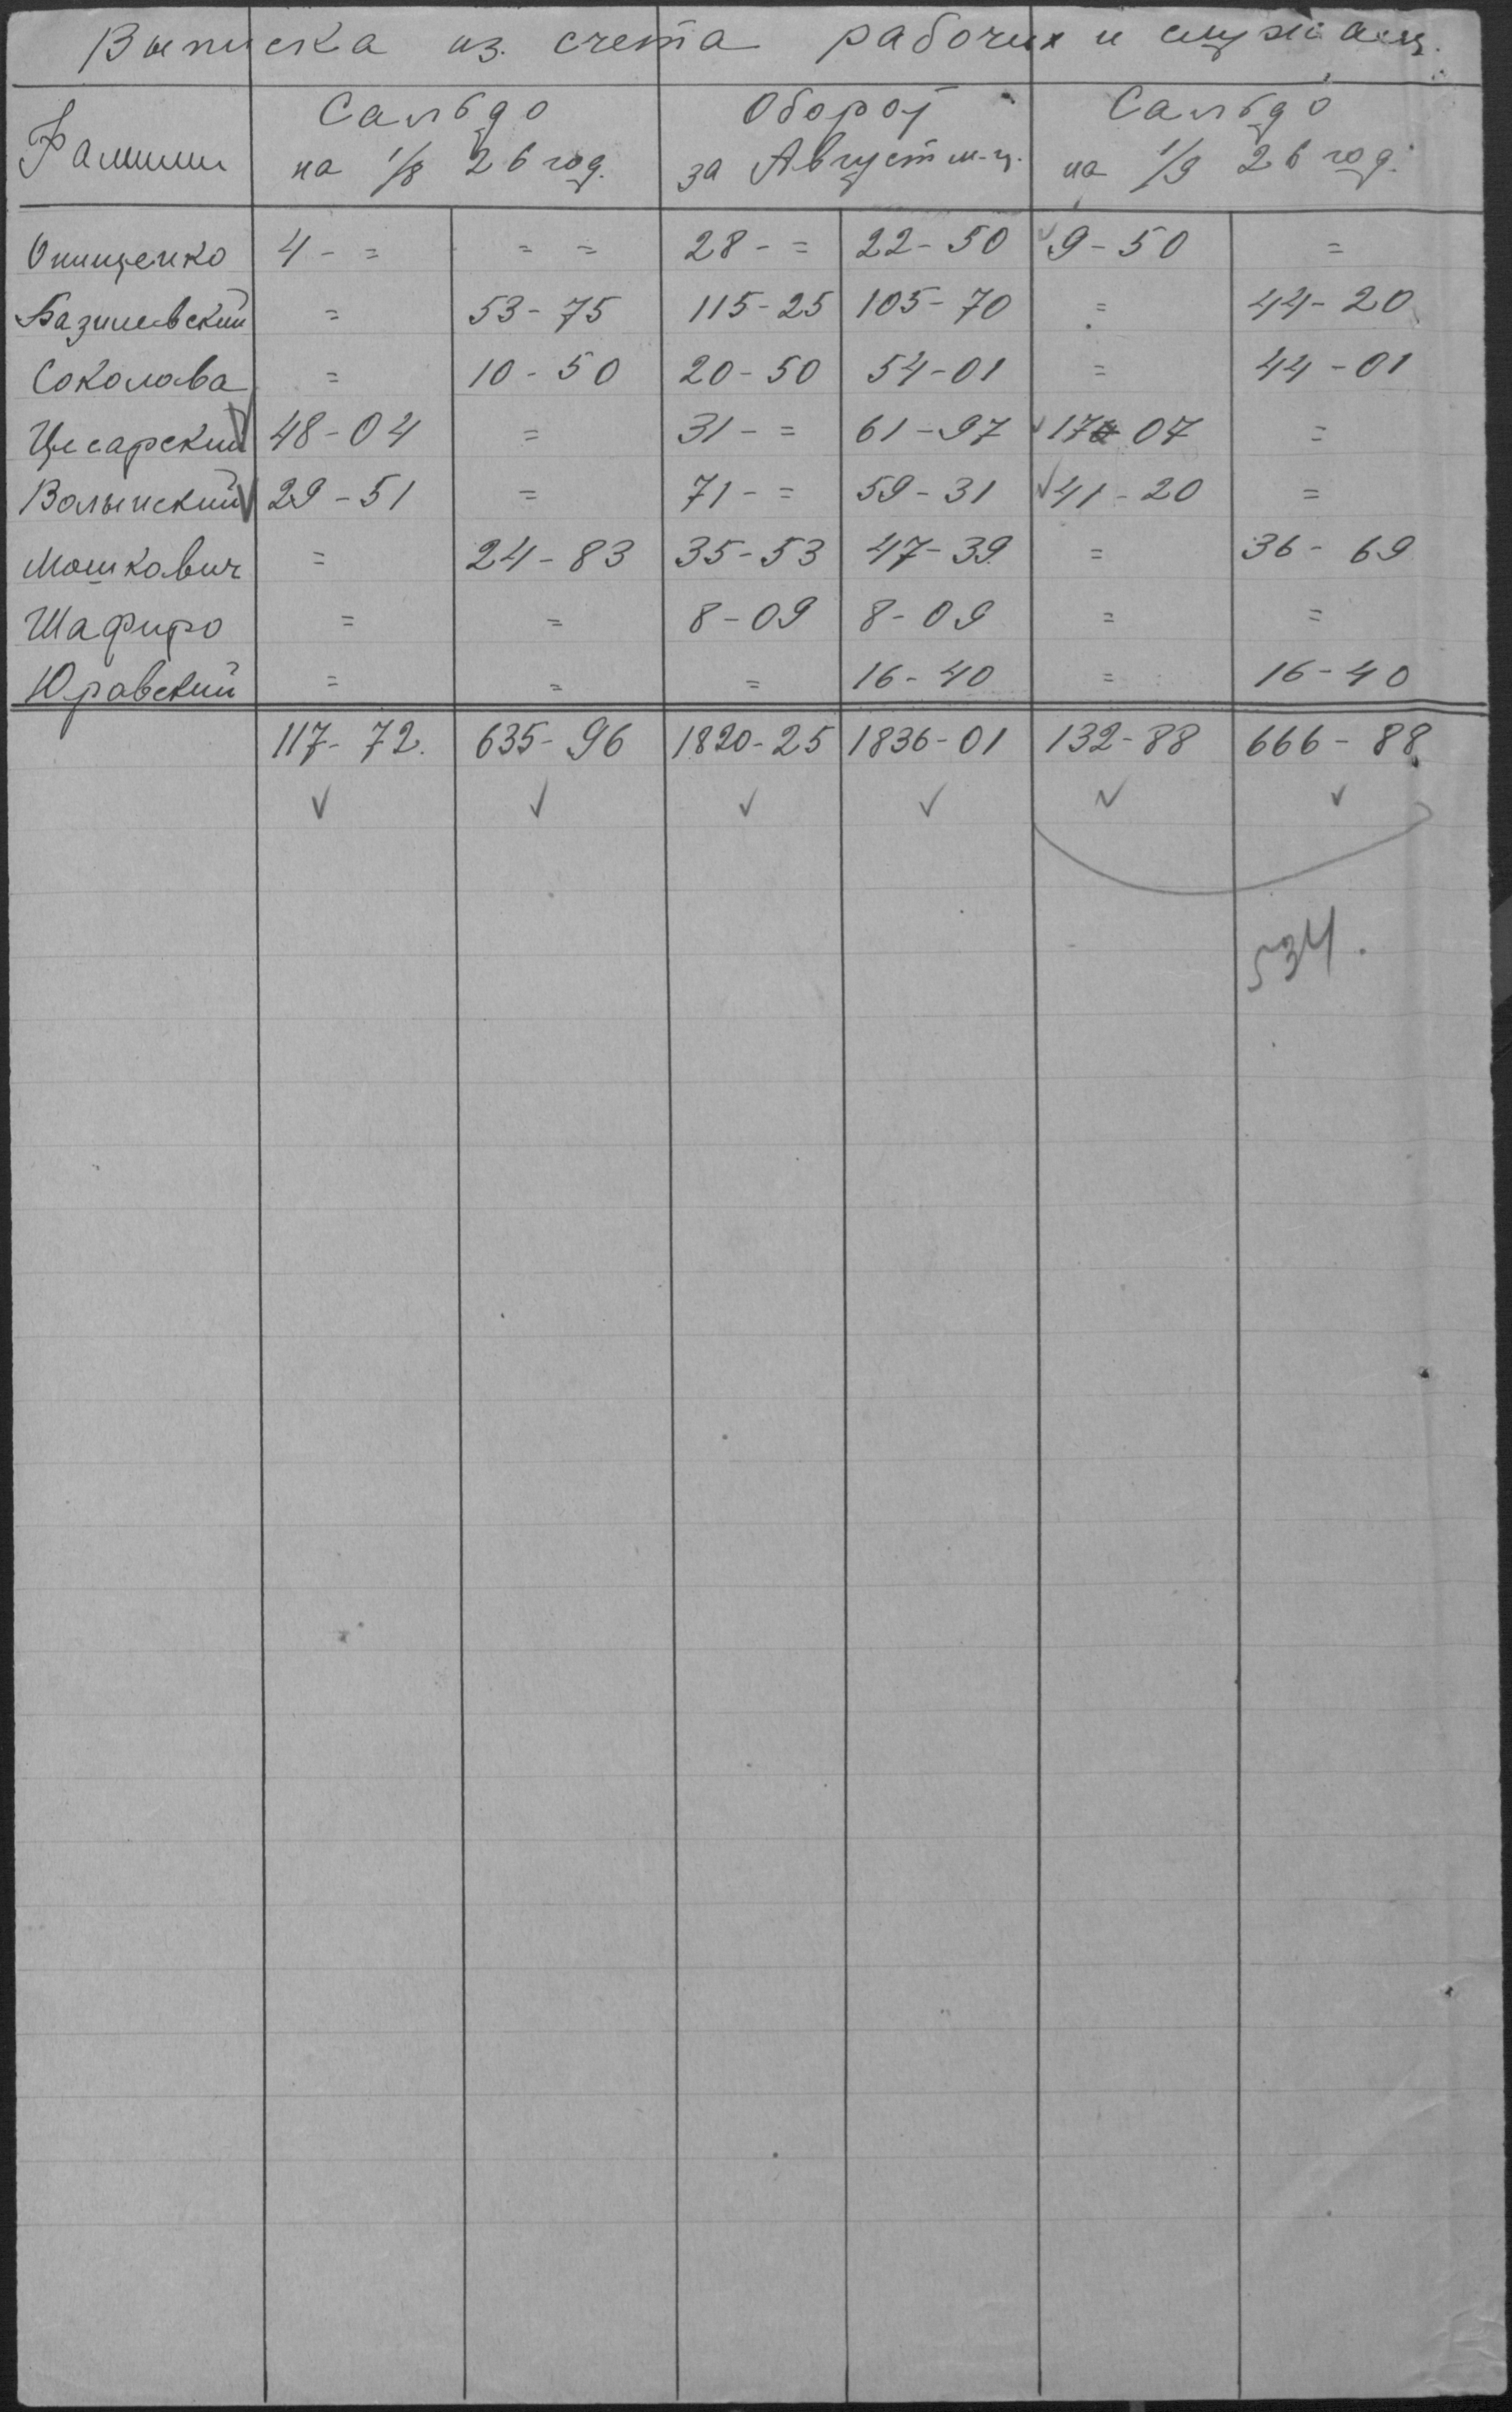 Выписка из счета рабочих и служащ.
Фамилии
Сальдо на 1/8 26 год.
Оборот за Август м-ц.
Сальдо на 1/9 26 год.
Онищенко 4 - = = = 28 - = 22-50 9-50 =
Базилевский = 53-75 115-25 105-70 = 44-20
Соколова = 10-50 20-50 54-01 = 44-01
Цесарский 48-04 = 31 - = 61-97 17 07 =
Волынский 29-51 = 71 - = 59-31 41-20 =
Мошкович = 24-83 35-53 47-39 = 36-69
Шафиро = = 8-09 8-09 = =
Юравский = = = 16-40 = 16-40
117-72. 635-96 1820-25 1836-01 132-88 666-88
534.